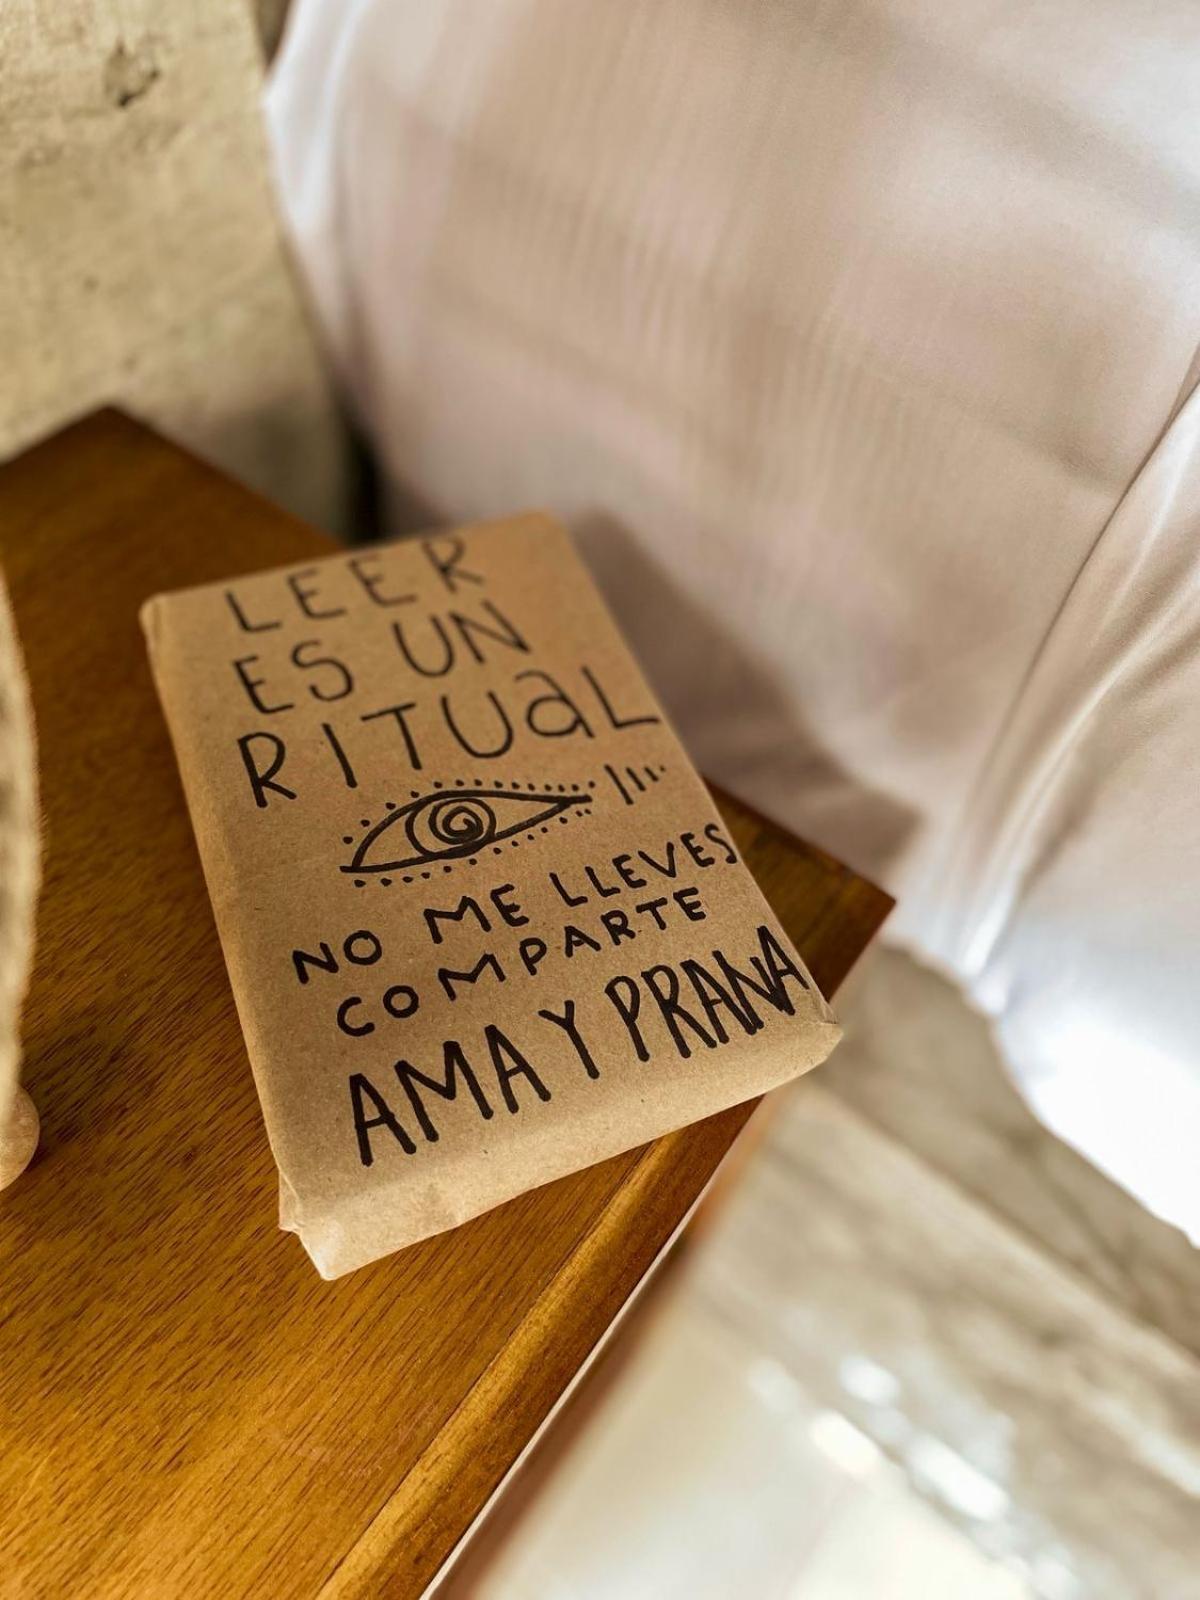 LEER
ES UN
RITUaL
NO ME LLEVES
COMPARTE
AMA Y PRANA